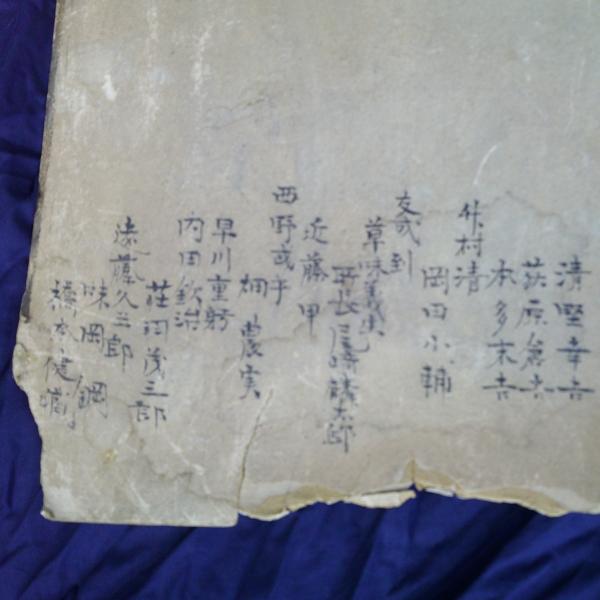 清野幸吉
荻原倉吉
本多末吉
竹村清
岡田小輔
友成到
草味義忠
西長尾崎勝太郎
近藤甲
西野武平
畑農実
早川重躬
内田欽治
荘村茂三郎
遠藤久三郎
味岡鋼
橋本健